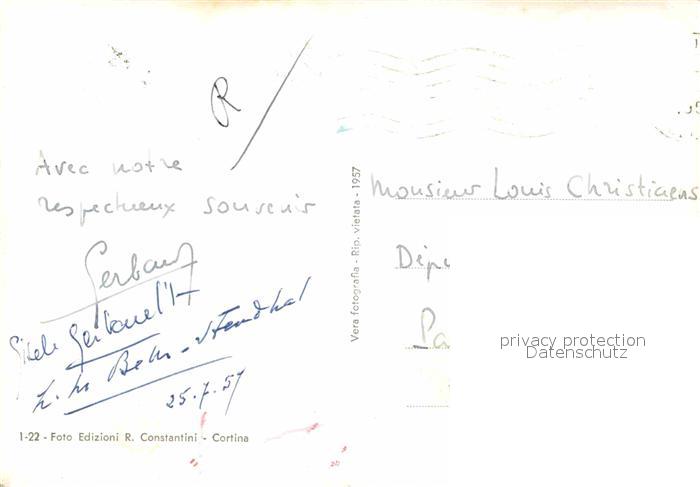 R
Avec notre
respectueux souvenir
Gerbault
Gisele Gerbault
Behr-Stendhal
25.7.57
1-22 - Foto Edizioni R. Constantini - Cortina
Vera fotografia - Rip. vietata - 1957
Monsieur Louis Christiaens
Dépu
Pa
privacy protection
Datenschutz